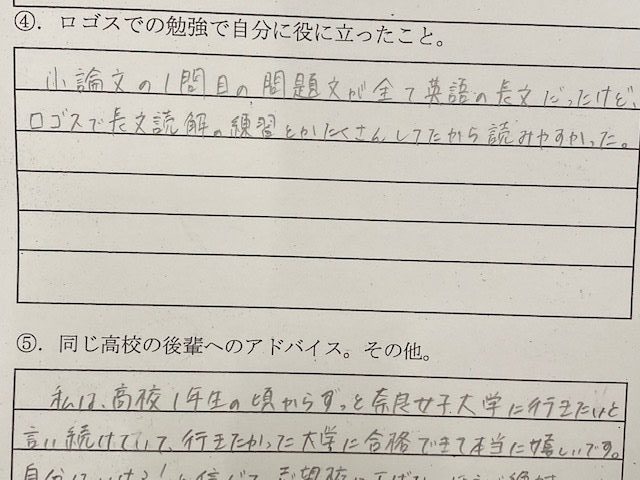 ④．ロゴスでの勉強で自分に役に立ったこと。
小論文の1問目の問題文が全て英語の長文だったけど、
ロゴスで長文読解の練習とかたくさんしてたから読みやすかった。
⑤．同じ高校の後輩へのアドバイス。その他。
私は、高校1年生の頃からずっと奈良女子大学に行きたいと
言い続けていて、行きたかった大学に合格できて本当に嬉しいです。